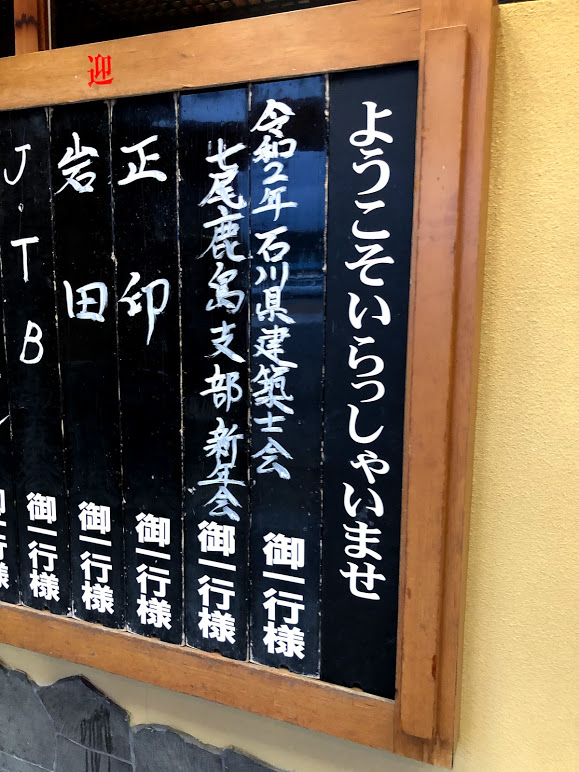 迎
ようこそいらっしゃいませ
令和2年石川県建築士会
御一行様
七尾鹿島支部新年会
御一行様
正印
御一行様
岩田
御一行様
J・TB
御一行様
御一行様